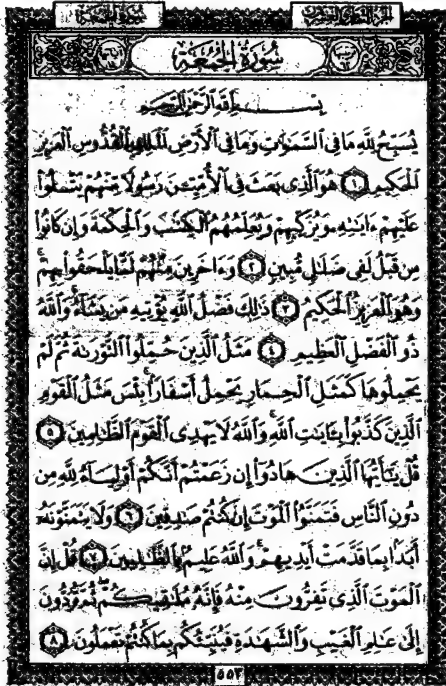 الجزء الثامن والعشرون سورة الجمعة
سُورَةُ الجُمُعَةِ
بِسْمِ ٱللَّهِ ٱلرَّحْمَٰنِ ٱلرَّحِيمِ
يُسَبِّحُ لِلَّهِ مَا فِى ٱلسَّمَٰوَٰتِ وَمَا فِى ٱلْأَرْضِ ٱلْمَلِكِ ٱلْقُدُّوسِ ٱلْعَزِيزِ
ٱلْحَكِيمِ ١ هُوَ ٱلَّذِى بَعَثَ فِى ٱلْأُمِّيِّۦنَ رَسُولًا مِّنْهُمْ يَتْلُوا۟
عَلَيْهِمْ ءَايَٰتِهِۦ وَيُزَكِّيهِمْ وَيُعَلِّمُهُمُ ٱلْكِتَٰبَ وَٱلْحِكْمَةَ وَإِن كَانُوا۟
مِن قَبْلُ لَفِى ضَلَٰلٍ مُّبِينٍ ٢ وَءَاخَرِينَ مِنْهُمْ لَمَّا يَلْحَقُوا۟ بِهِمْ ۚ
وَهُوَ ٱلْعَزِيزُ ٱلْحَكِيمُ ٣ ذَٰلِكَ فَضْلُ ٱللَّهِ يُؤْتِيهِ مَن يَشَآءُ ۚ وَٱللَّهُ
ذُو ٱلْفَضْلِ ٱلْعَظِيمِ ٤ مَثَلُ ٱلَّذِينَ حُمِّلُوا۟ ٱلتَّوْرَىٰةَ ثُمَّ لَمْ
يَحْمِلُوهَا كَمَثَلِ ٱلْحِمَارِ يَحْمِلُ أَسْفَارًۢا ۚ بِئْسَ مَثَلُ ٱلْقَوْمِ
ٱلَّذِينَ كَذَّبُوا۟ بِـَٔايَٰتِ ٱللَّهِ ۚ وَٱللَّهُ لَا يَهْدِى ٱلْقَوْمَ ٱلظَّٰلِمِينَ ٥
قُلْ يَٰٓأَيُّهَا ٱلَّذِينَ هَادُوٓا۟ إِن زَعَمْتُمْ أَنَّكُمْ أَوْلِيَآءُ لِلَّهِ مِن
دُونِ ٱلنَّاسِ فَتَمَنَّوُا۟ ٱلْمَوْتَ إِن كُنتُمْ صَٰدِقِينَ ٦ وَلَا يَتَمَنَّوْنَهُۥٓ
أَبَدًۢا بِمَا قَدَّمَتْ أَيْدِيهِمْ ۚ وَٱللَّهُ عَلِيمٌۢ بِٱلظَّٰلِمِينَ ٧ قُلْ إِنَّ
ٱلْمَوْتَ ٱلَّذِى تَفِرُّونَ مِنْهُ فَإِنَّهُۥ مُلَٰقِيكُمْ ۖ ثُمَّ تُرَدُّونَ
إِلَىٰ عَٰلِمِ ٱلْغَيْبِ وَٱلشَّهَٰدَةِ فَيُنَبِّئُكُم بِمَا كُنتُمْ تَعْمَلُونَ ٨
٥٥٣